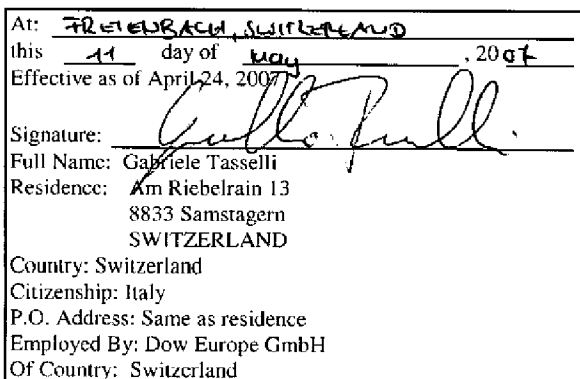 At: FREIENBACH, SWITZERLAND
this 11 day of May, 2007
Effective as of April 24, 2007
Signature:
Full Name: Gabriele Tasselli
Residence: Am Riebelrain 13
8833 Samstagern
SWITZERLAND
Country: Switzerland
Citizenship: Italy
P.O. Address: Same as residence
Employed By: Dow Europe GmbH
Of Country: Switzerland